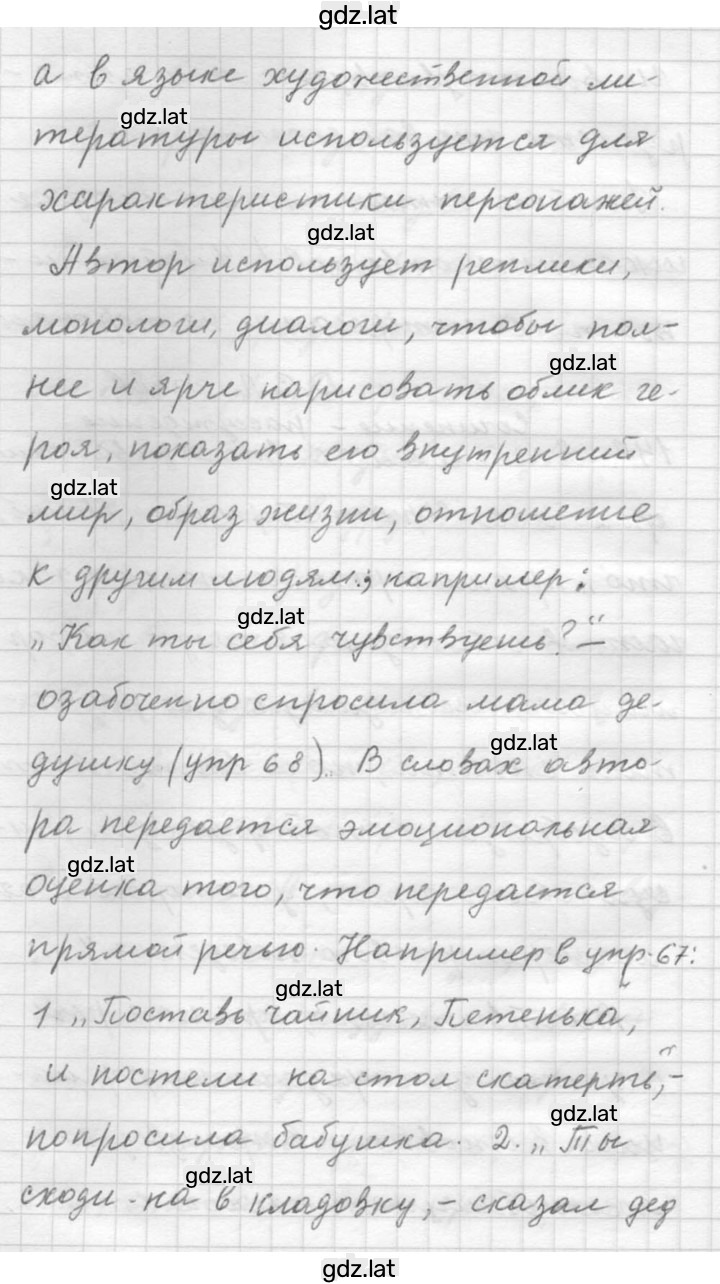 gdz.lat
а в языке художественной ли-
gdz.lat
тературы используется для
характеристики персонажей.
gdz.lat
Автор использует реплики,
монологи, диалоги, чтобы пол-
gdz.lat
нее и ярче нарисовать облик ге-
роя, показать его внутренний
gdz.lat
мир, образ жизни, отношение
к другим людям.; например:
gdz.lat
„Как ты себя чувствуешь?“ –
озабоченно спросила мама де-
gdz.lat
душку (упр 68). В словах авто-
ра передается эмоциональная
gdz.lat
оценка того, что передается
прямой речью. Например в упр. 67:
gdz.lat
1 „Поставь чайник, Петенька,
и постели на стол скатерть“, –
gdz.lat
попросила бабушка. 2. „Ты
gdz.lat
сходи-ка в кладовку, – сказал дед
gdz.lat